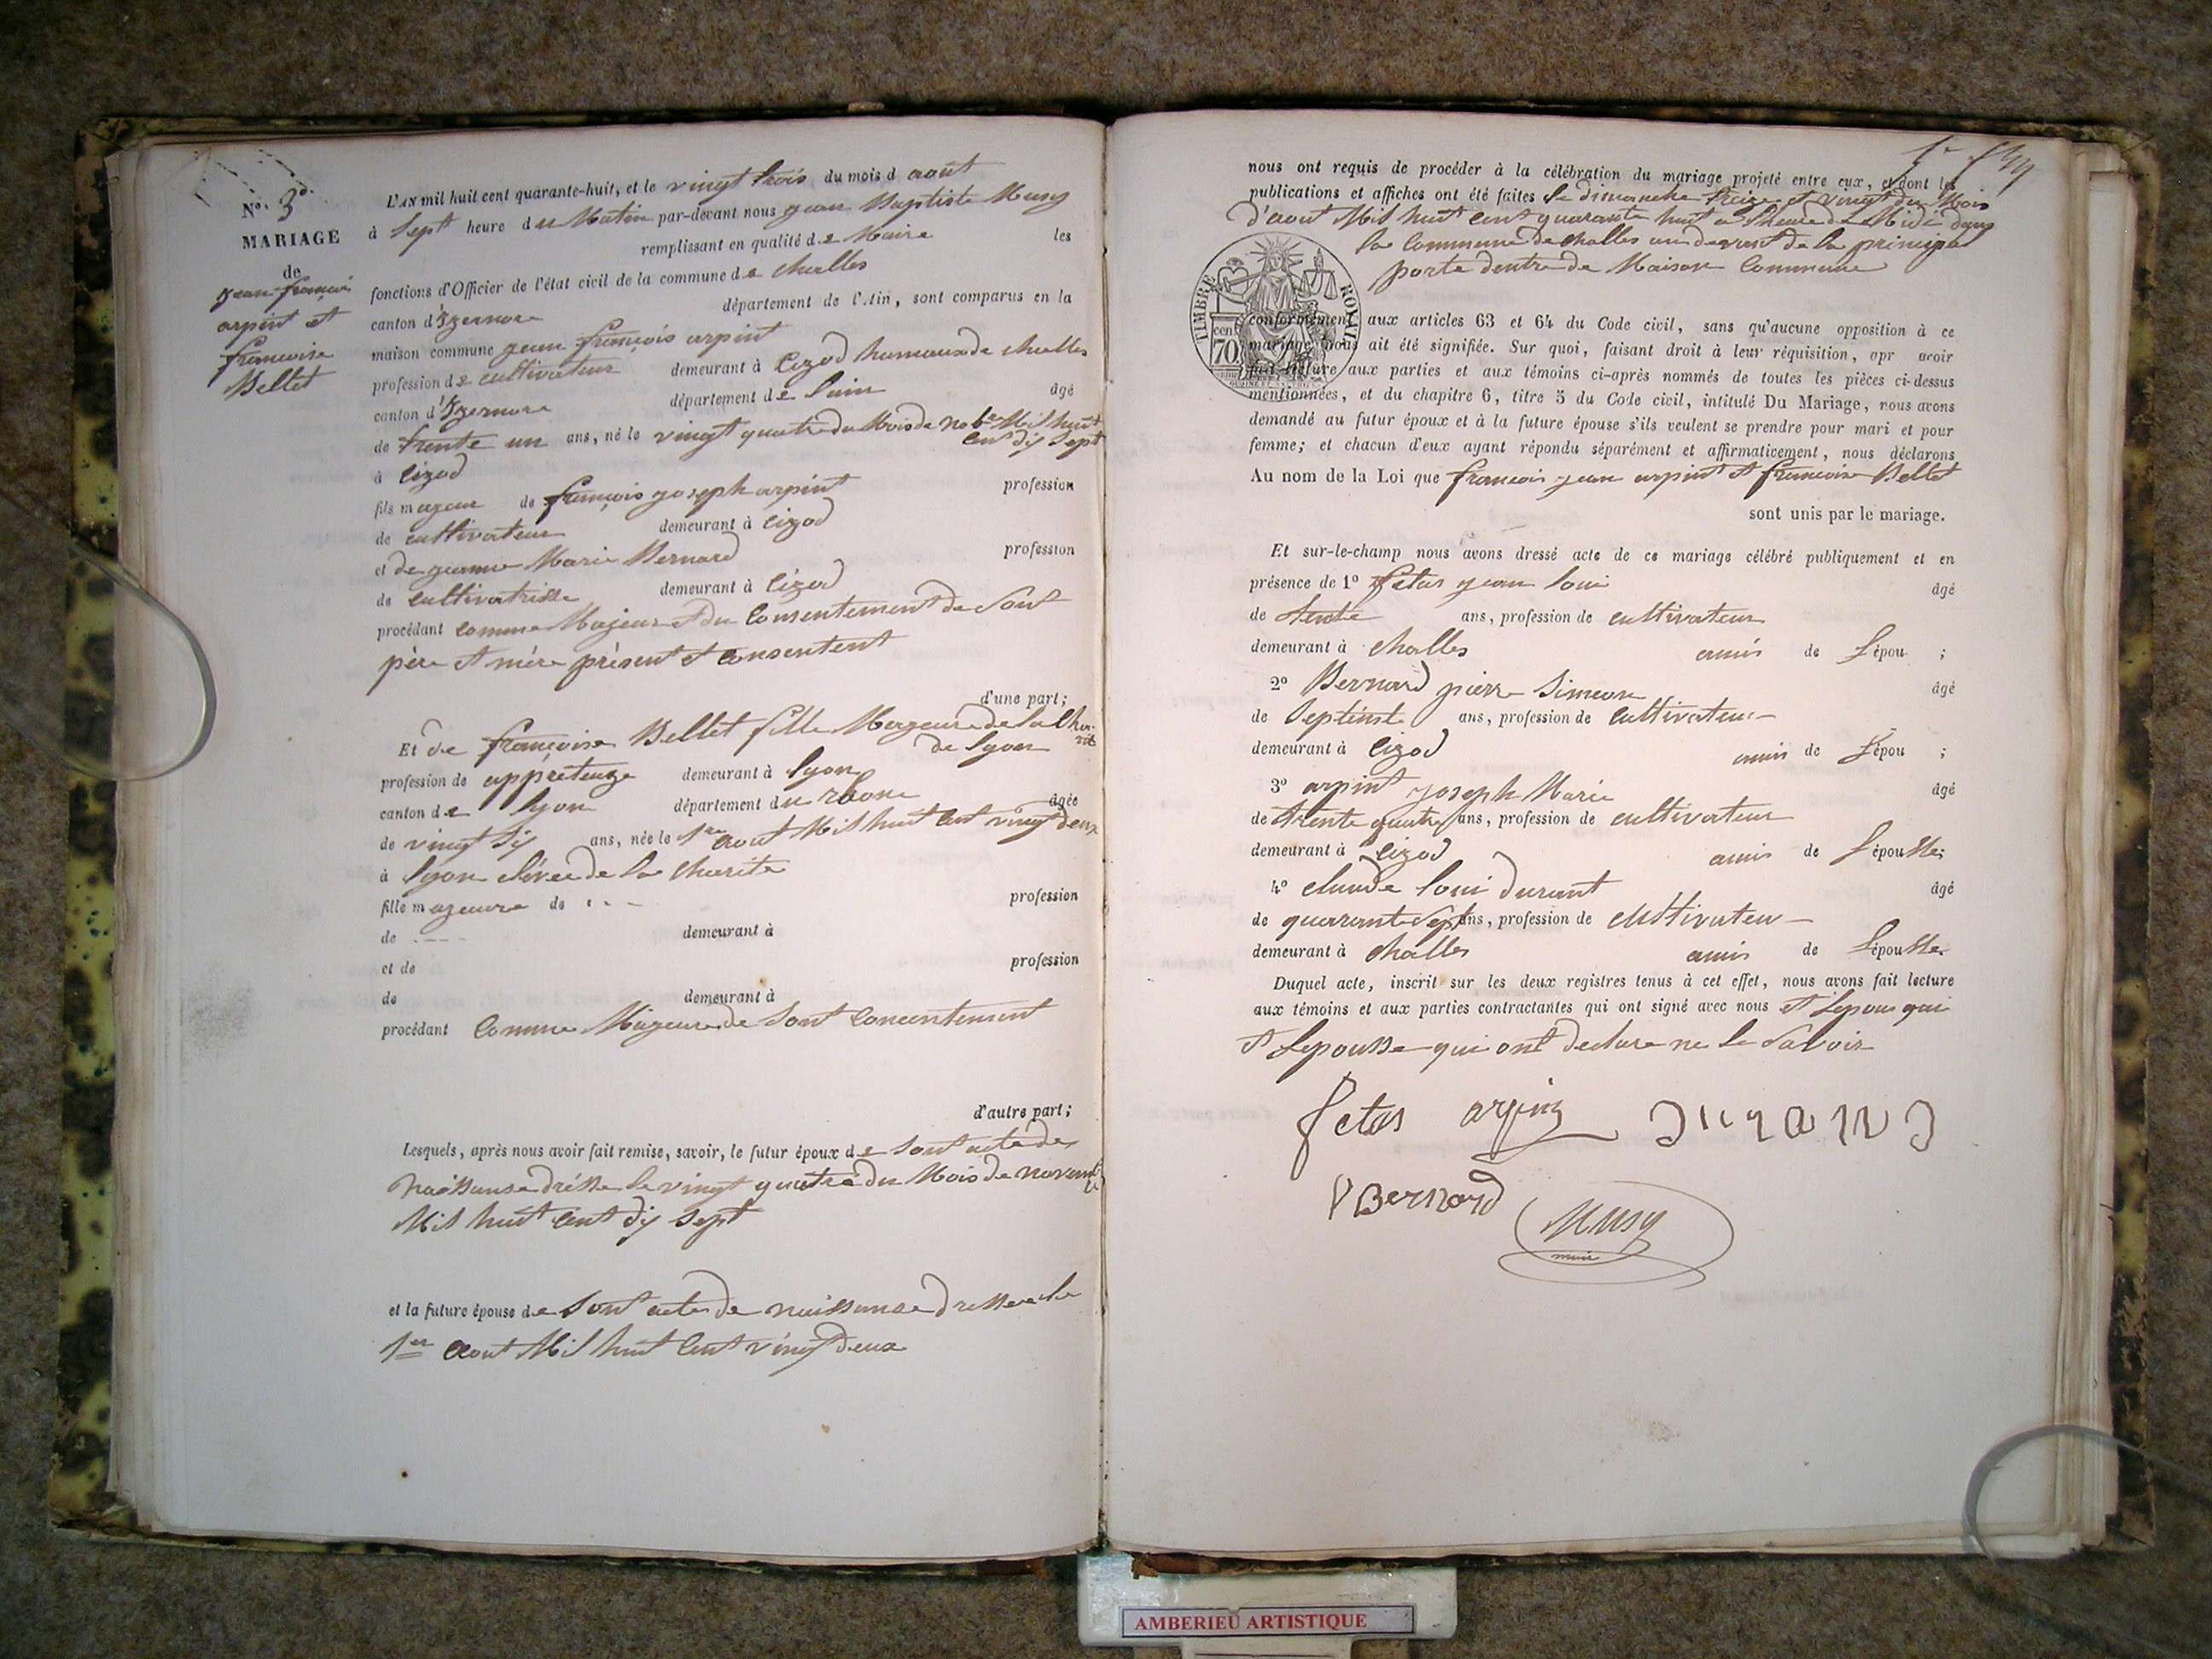 No. 3e
MARIAGE
de
jean françois
arpint et
francoise
Bellet
L'AN mil huit cent quarante-huit, et le vingt trois du mois d aout
à Sept heure du Matin par-devant nous jean Baptiste Musy
remplissant en qualité de Maire les
fonctions d'Officier de l'état civil de la commune de challes
canton d'Izernore département de l'Ain, sont comparus en la
maison commune jean françois arpint
profession de cultivateur demeurant à Cizod hamaux de challes
canton d'Izernore département de lain âgé
de trente un ans, né le vingt quatre du Mois de nobre Mil huit
cent dix Sept
à Cizod
fils majeur de françois joseph arpint profession
de cultivateur demeurant à Cizod
et de jeanne Marie Bernard profession
de cultivatrisse demeurant à Cizod
procédant comme Majeur et du Consentement de Sont
père et mère présent et Consentent
d'une part;
Et de françoise Bellet fille Majeure de la Cha-
rité
de Lyon
profession de apprêteuze demeurant à Lyon
canton de Lyon département du rhone âgée
de vingt Six ans, née le 1er aout Mil huit Cent vingt deux
à Lyon élévée de la Charité
fille majeure de - - - profession
de - - - - demeurant à
et de profession
de demeurant à
procédant Comme Majeure de Sont Concentement
d'autre part;
Lesquels, après nous avoir fait remise, savoir, le futur époux de Sont acte de
naissanse drésse le vingt quatre du Mois de novembre
Mil huit Cent dix Sept
et la future épouse de Sont acte de naissanse dressee le
1er aout Mil huit Cent vingt deux
nous ont requis de procéder à la célébration du mariage projeté entre eux, et dont les
publications et affiches ont été faites le dimanche treize et vingt du Mois
D'aout Mil huit Cent quarante huit a Lheure de Midi dans
la Commune de challes au devant de la principal
porte dentre de Maison Commune
TIMBRE ROYAL
70 cent
conformément aux articles 63 et 64 du Code civil, sans qu'aucune opposition à ce
mariage nous ait été signifiée. Sur quoi, faisant droit à leur réquisition, apr avoir
fait lecture aux parties et aux témoins ci-après nommés de toutes les pièces ci-dessus
mentionnées, et du chapitre 6, titre 5 du Code civil, intitulé Du Mariage, nous avons
demandé au futur époux et à la future épouse s'ils veulent se prendre pour mari et pour
femme; et chacun d'eux ayant répondu séparément et affirmativement, nous déclarons
Au nom de la Loi que francois jean arpint et francoise Bellet
sont unis par le mariage.
Et sur-le-champ nous avons dressé acte de ce mariage célébré publiquement et en
présence de 1º fetas jean loui âgé
de trente ans, profession de cultivateur
demeurant à challes amis de Lépou ;
2º Bernard pierre Simeon âgé
de ans, profession de cultivateur
demeurant à Cizod amis de Lépou ;
3º arpint joseph Marie âgé
de trente quatre ans, profession de cultivateur
demeurant à Cizod amis de Lépousse;
4º claude loui durant âgé
de quarrante Sept ans, profession de cultivateur
demeurant à challes amis de Lépousse.
Duquel acte, inscrit sur les deux registres tenus à cet effet, nous avons fait lecture
aux témoins et aux parties contractantes qui ont signé avec nous et Lepous qui
et Lepousse qui ont declare ne le Savoir
fetas arpin durand
P Bernard
Musy
maire
AMBERIEU ARTISTIQUE